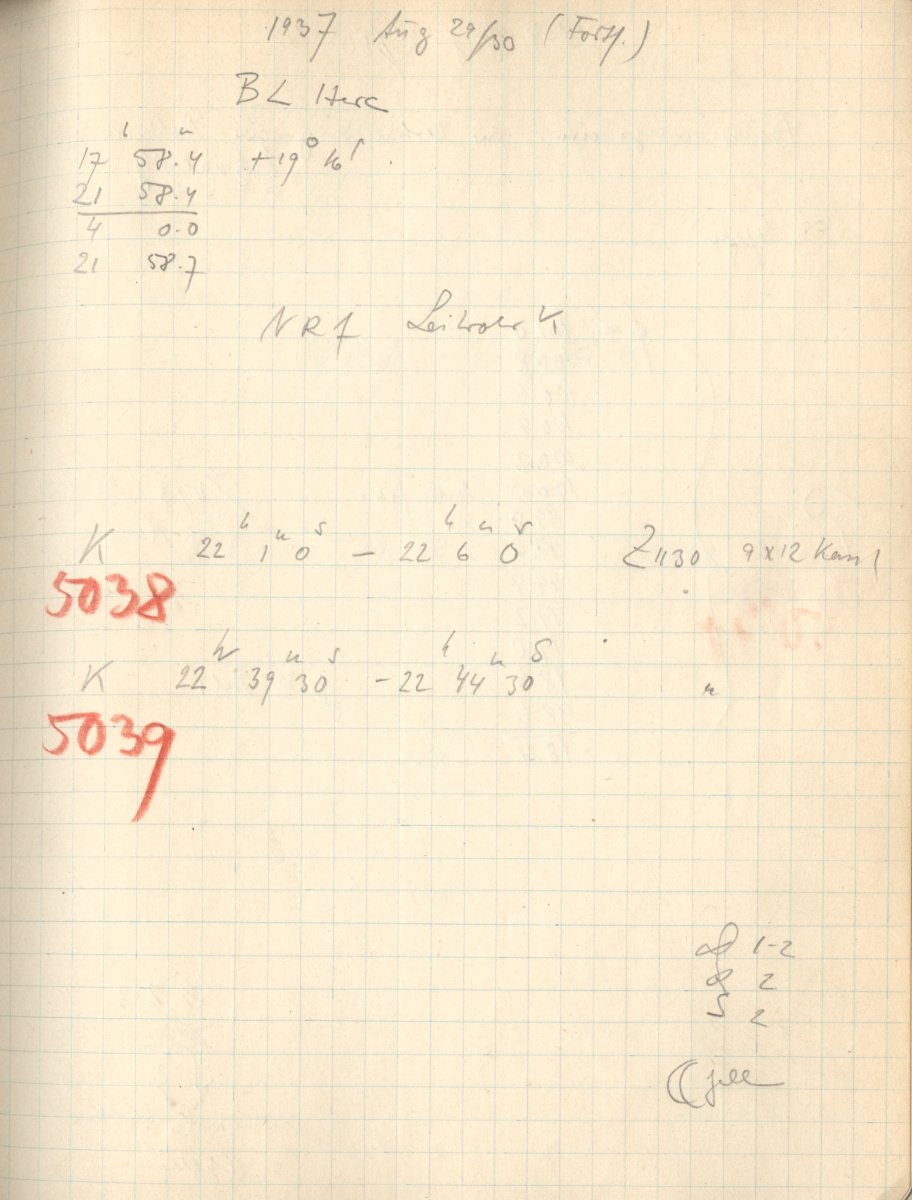 1937 Aug 29/30 (Forts.)
BL Herc
h m
17 58.4 +19° 16'
21 58.4
4 0.0
21 58.7
NRf Leitrohr K
K 22h 1m 0s - 22h 6m 0s Z1130 9x12 Kam
5038
K 22h 39m 30s - 22h 44m 30s "
5039
1-2
2
S 2